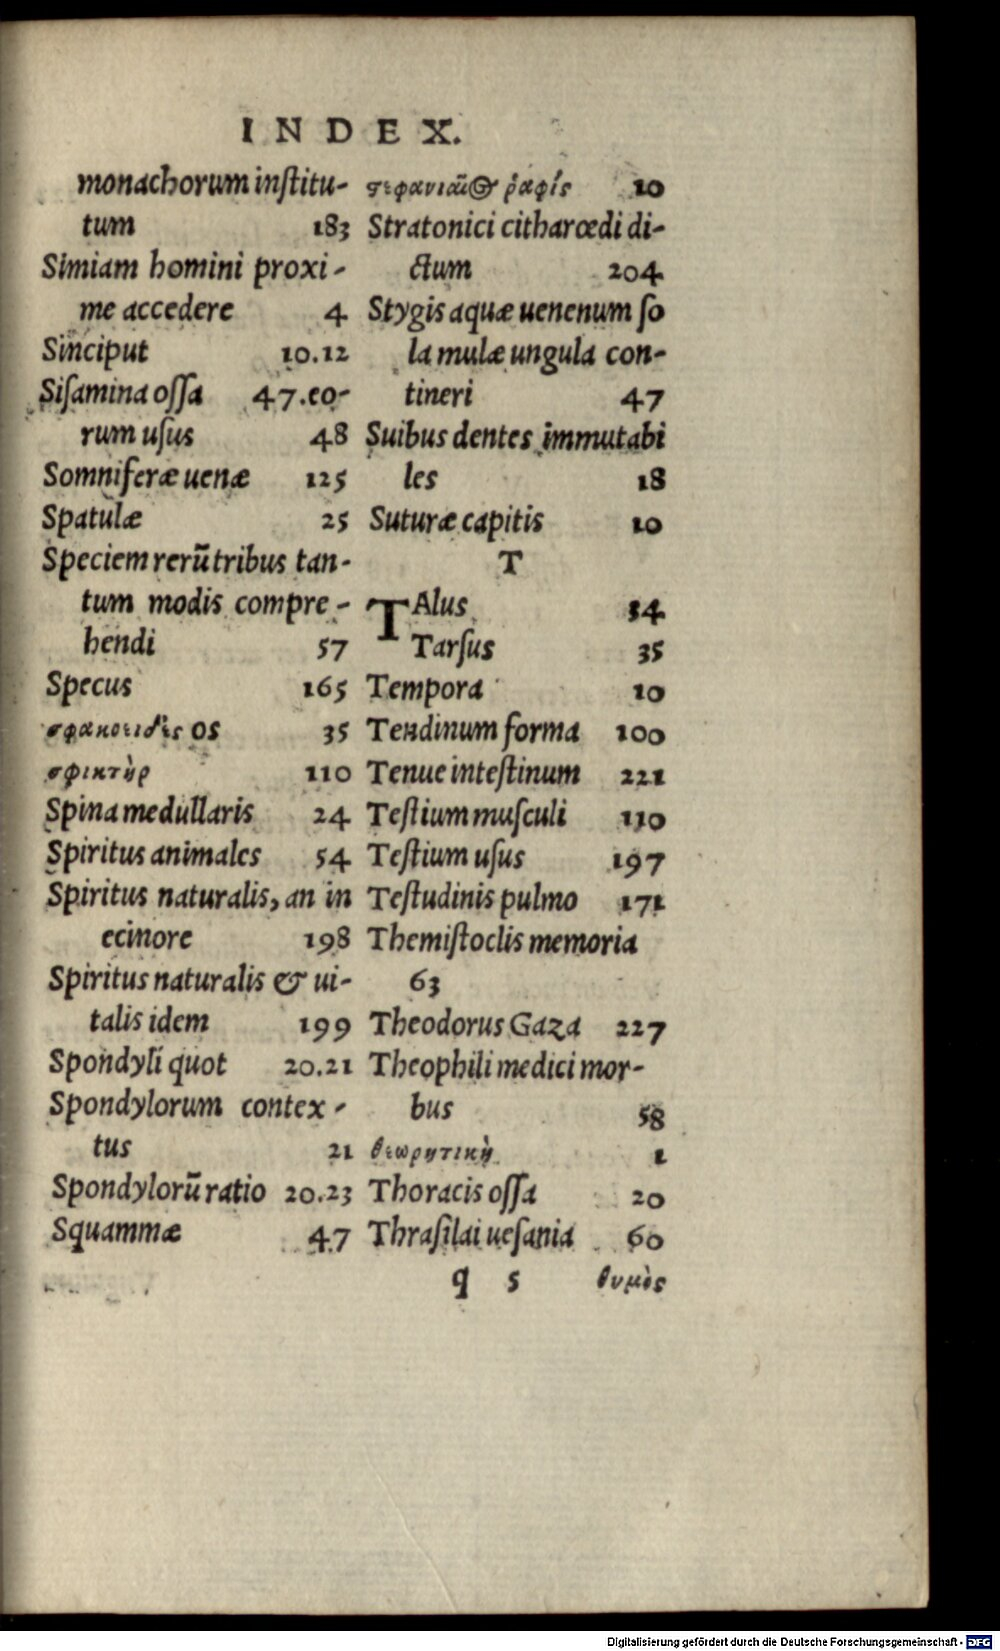 INDEX.
monachorum institu-
tum 183
Simiam homini proxi-
me accedere 4
Sinciput 10.12
Sisamina ossa 47.eo-
rum usus 48
Somniferæ uenæ 125
Spatulæ 25
Speciem rerũ tribus tan-
tum modis compre-
hendi 57
Specus 165
σφακοειδὲς os 35
σφικτὴρ 110
Spina medullaris 24
Spiritus animales 54
Spiritus naturalis, an in
ecinore 198
Spiritus naturalis & ui-
talis idem 199
Spondyli quot 20.21
Spondylorum contex-
tus 21
Spondylorũ ratio 20.23
Squammæ 47
10
Stratonici citharœdi di-
ctum 204
Stygis aquæ uenenum so
la mulæ ungula con-
tineri 47
Suibus dentes immutabi
les 18
Suturæ capitis 10
T
TAlus 34
Tarsus 35
Tempora 10
Tendinum forma 100
Tenue intestinum 221
Testium musculi 110
Testium usus 197
Testudinis pulmo 171
Themistoclis memoria
63
Theodorus Gaza 227
Theophili medici mor-
bus 58
θεωρητικὴ 1
Thoracis ossa 20
Thrasilai uesania 60
q s θυμὸς
Digitalisierung gefördert durch die Deutsche Forschungsgemeinschaft - DFG